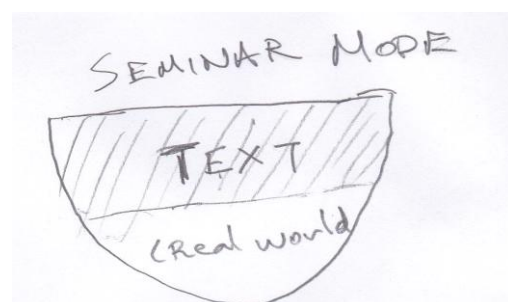 SEMINAR MODE
TEXT
(Real world